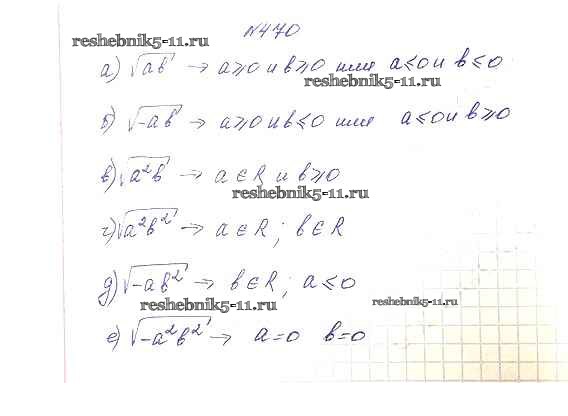 №470
reshebnik5-11.ru
а) √ab → a≥0 и b≥0 или a≤0 и b≤0
reshebnik5-11.ru
б) √-ab → a≥0 и b≤0 или a≤0 и b≥0
в) √a²b → a∈R и b≥0
reshebnik5-11.ru
г) √a²b² → a∈R; b∈R
д) √-ab² → b∈R; a≤0
reshebnik5-11.ru reshebnik5-11.ru
е) √-a²b² → a=0 b=0